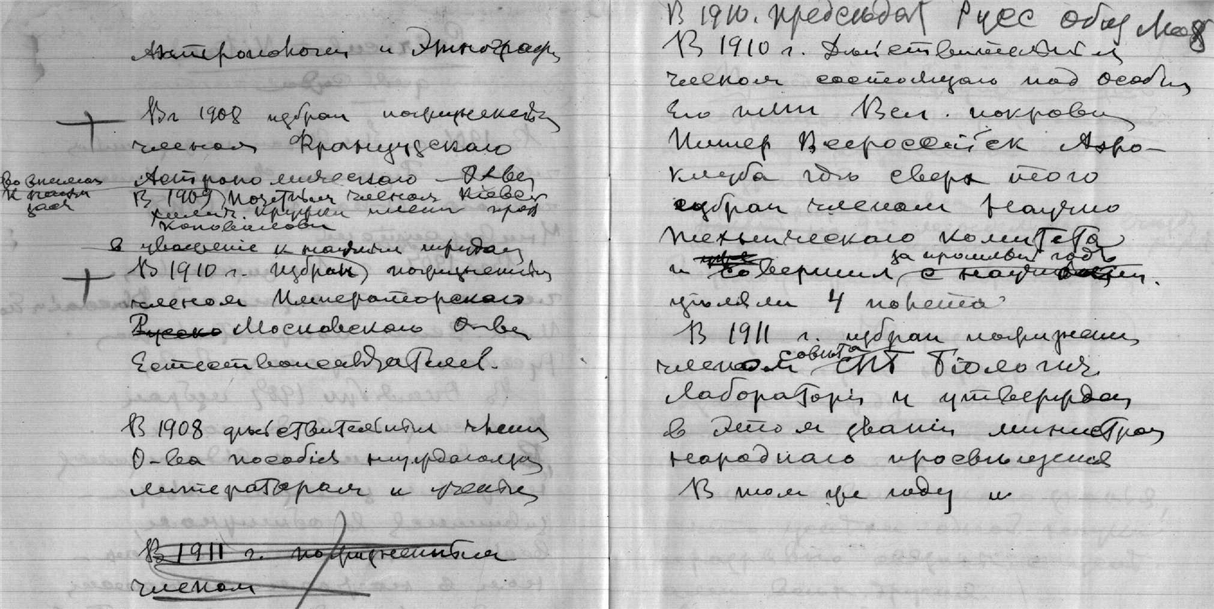 Антропологіи и Этнографіи
В 1908 избран пожизненным
членом Французскаго
Астрономическаго О-ва
В 1909 Почетным членом Кіевск
химич. кружка имени проф
Коновалова
в уваженіе к научным трудам
В 1910 г. избран пожизненным
членом Императорскаго
Русско Московскаго О-ва
Естествоиспытателей.
В 1908 действительным членом
О-ва пособія нуждающимся
литераторам и ученым
В 1911 г. пожизненным
членом
В 1910. председат Русс общ
В 1910 г. Действительным
членом состоящаго под особым
Его имп Вел. покров
Импер Всероссійск Аэро-
клуба где сверх того
избран членом Научно
техническаго комитета
за прошлый годъ
и совершил с научн
целями 4 полета
В 1911 г. избран пожизнен
членом совета СПБ Біологич.
Лабораторіи и утвержден
в этом званіи министром
народнаго просвещенія
В том же году и